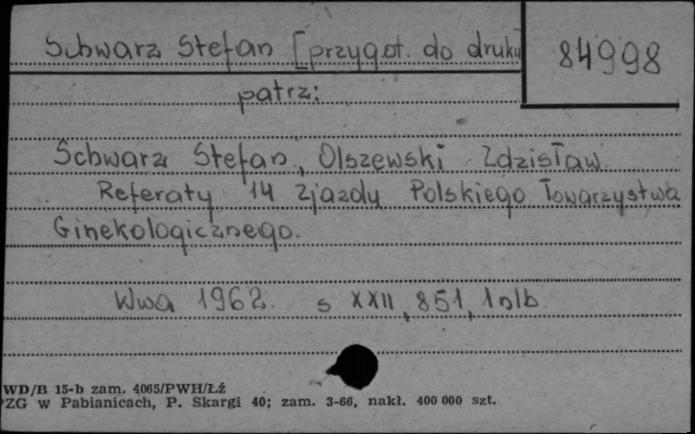 Schwarz Stefan [przygot. do druku]
84998
patrz:
Schwarz Stefan, Olszewski Zdzisław
Referaty 14 Zjazdu Polskiego Towarzystwa
Ginekologicznego.
Wwa 1962. s XXII, 851, 1 nlb
WD/B 15-b zam. 4065/PWH/Łź
PZG w Pabianicach, P. Skargi 40; zam. 3-66, nakł. 400 000 szt.